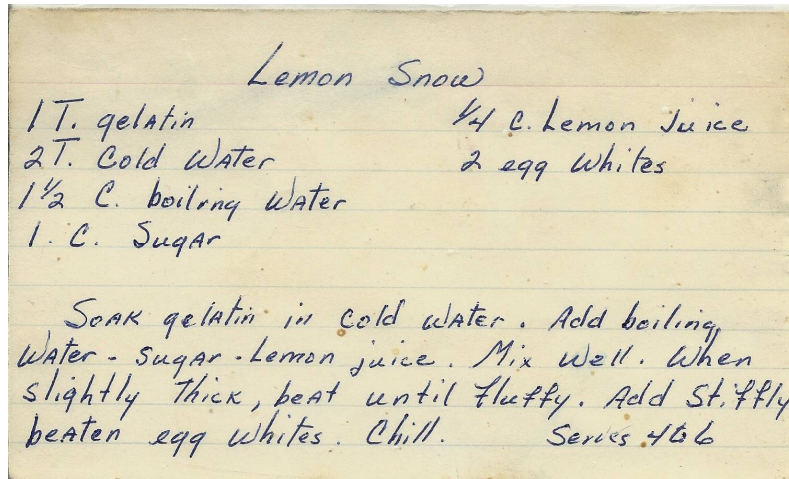 Lemon Snow
1 T. gelatin
2 T. Cold Water
1 1/2 C. boiling Water
1. C. Sugar
1/4 C. Lemon Juice
2 egg Whites
Soak gelatin in Cold Water. Add boiling
Water - Sugar - Lemon juice. Mix Well. When
slightly Thick, beat until fluffy. Add Stiffly
beaten egg Whites. Chill. Serves 4 to 6